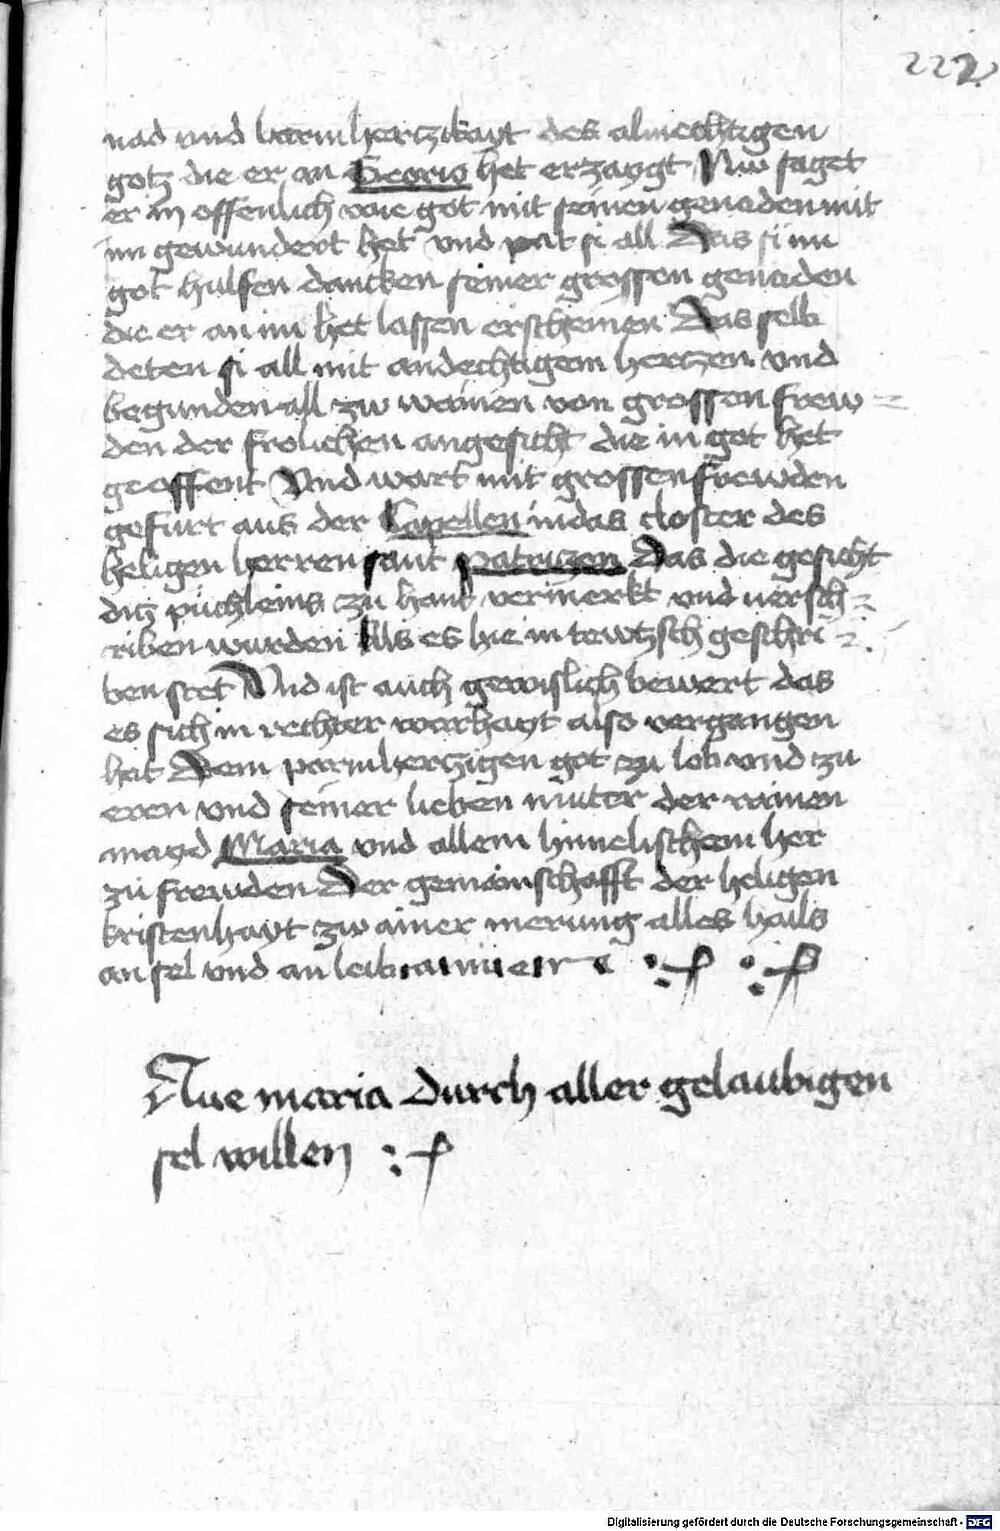 222
nad vnd barmhertzikayt des almechtigen
gotz die er an Georio het erzaygt Nw saget
er in offenlich wie got mit seinen genaden mit
im gewundert het vnd pat si all Das si im
got hulfen dancken seiner grossen genaden
die er an im het lassen erscheinen Das selb
deten si all mit andechtigem hertzen vnd
begunden all zw wainen von grossen frew=
den der frolichen angesicht die in got het
geoffent Vnd wart mit grossen frewden
gefurt aus der Capellen in das closter des
heligen herren sant patrizen Das die gesicht
ditz püchleins zu hant vermerkt vnd versch=
riben wurden Als es hie in tewtzsch geschri=
ben stet Vnd ist auch gewislich bewert das
es sich in rechter warhayt also vergangen
hat Dem parmherczigen got zu lob vnd zu
eren vnd seiner lieben muter der rainen
mayd Maria vnd allem himelischem her
zü frewden Der gemainschafft der heligen
kristenhayt zw ainer merung alles hails
an sel vnd an leib
Aue maria durch aller gelaubigen
sel willen
Digitalisierung gefördert durch die Deutsche Forschungsgemeinschaft - DFG